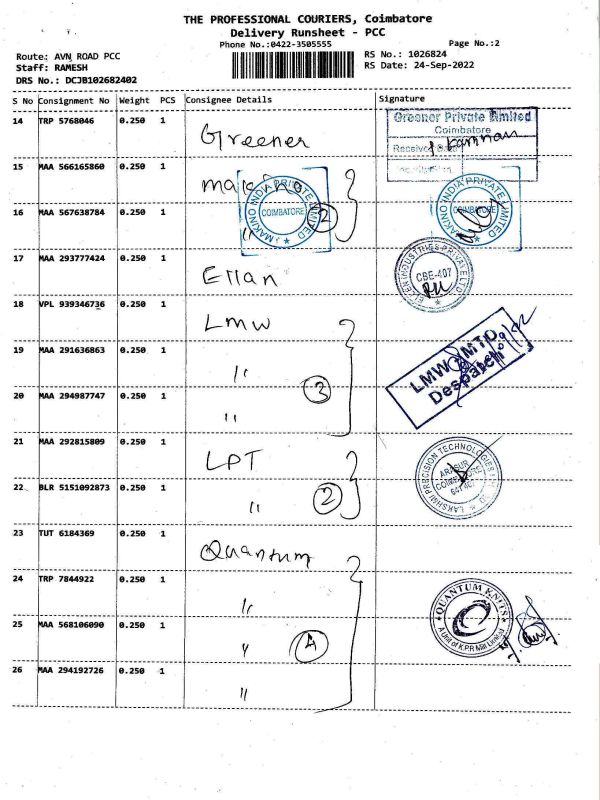 THE PROFESSIONAL COURIERS, Coimbatore
Delivery Runsheet - PCC
Phone No.:0422-3505555
Page No.:2
Route: AVN ROAD PCC
RS No.: 1026824
Staff: RAMESH
RS Date: 24-Sep-2022
DRS No.: DCJB102682402
S No Consignment No Weight PCS Consignee Details Signature
14 TRP 5768046 0.250 1 Greener
Greener Private Limited
Coimbatore
15 MAA 566165860 0.250 1
MAKINO INDIA PRIVATE LIMITED
COIMBATORE
MAKINO INDIA PRIVATE LIMITED
COIMBATORE
16 MAA 567638784 0.250 1 " 2
17 MAA 293777424 0.250 1
INDUSTRIES PRIVATE LTD
CBE-407
18 VPL 939346736 0.250 1 LMW
19 MAA 291636863 0.250 1 "
LMW
Despatch
20 MAA 294987747 0.250 1 " 3
21 MAA 292815809 0.250 1 LPT
LAKSHMI PRECISION TECHNOLOGIES
ARASUR
COIMBATORE
22 BLR 5151092873 0.250 1 " 2
23 TUT 6184369 0.250 1 Quantum
24 TRP 7844922 0.250 1 "
QUANTUM KNITS
A Unit of K.P.R Mill Limited
25 MAA 568106090 0.250 1 " 4
26 MAA 294192726 0.250 1 "